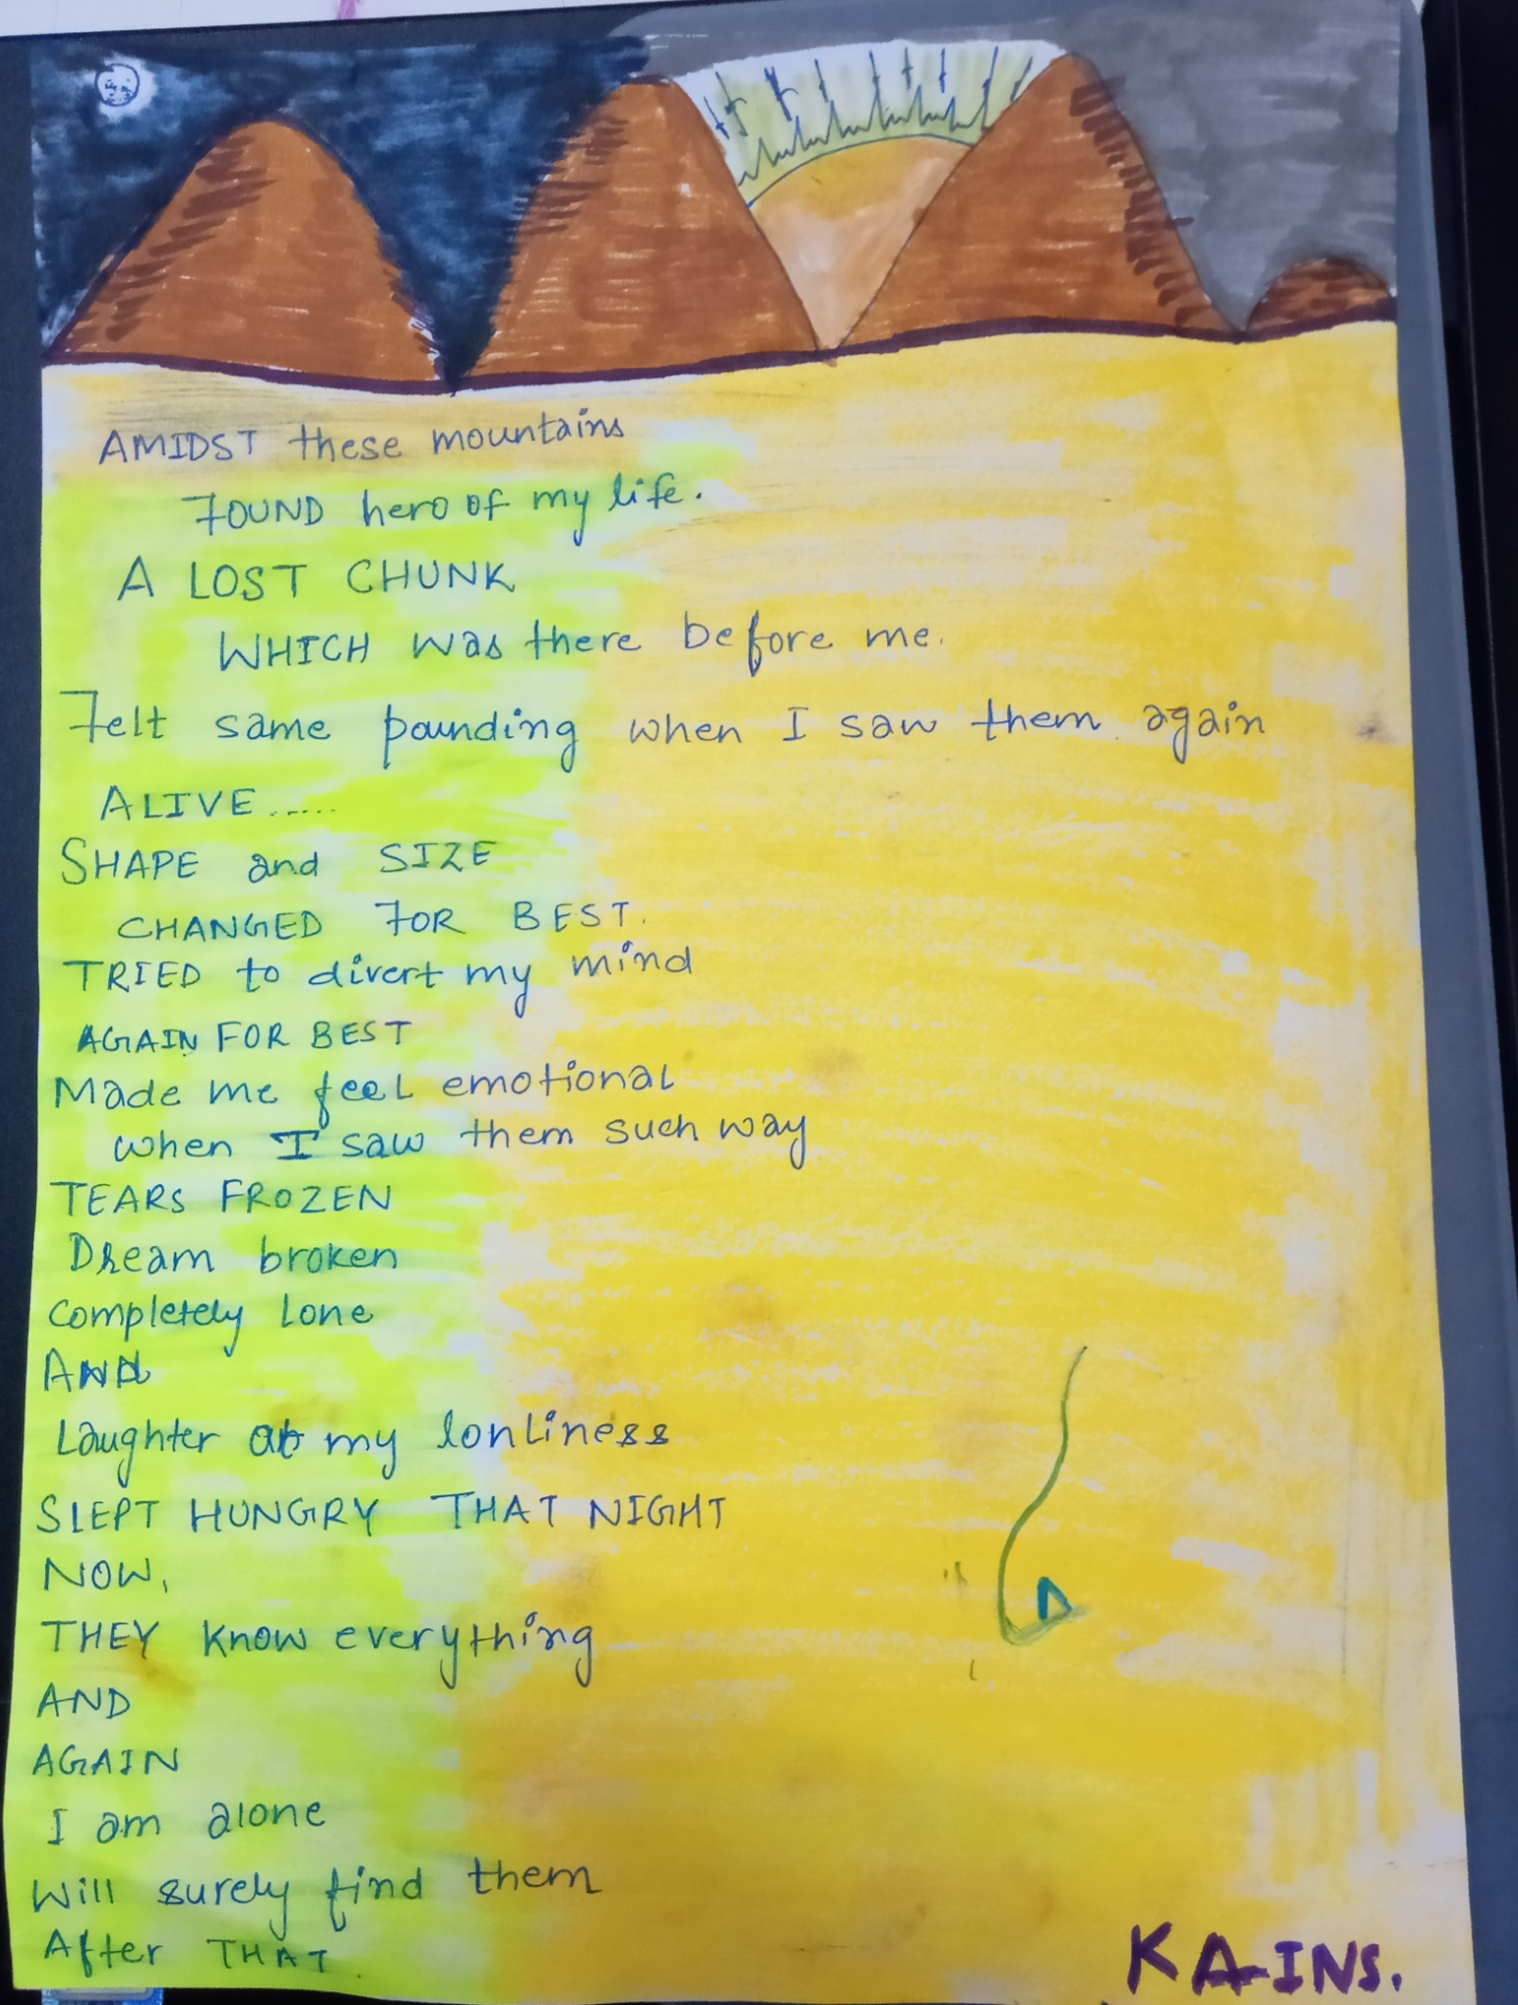 AMIDST these mountains
FOUND hero of my life.
A LOST CHUNK
WHICH was there before me.
Felt same pounding when I saw them again
ALIVE......
SHAPE and SIZE
CHANGED FOR BEST.
TRIED to divert my mind
AGAIN FOR BEST
Made me feel emotional
when I saw them such way
TEARS FROZEN
Dream broken
completely lone
AND
Laughter at my lonliness
SLEPT HUNGRY THAT NIGHT
NOW,
THEY know everything
AND
AGAIN
I am alone
Will surely find them
After THAT.
KAINS.